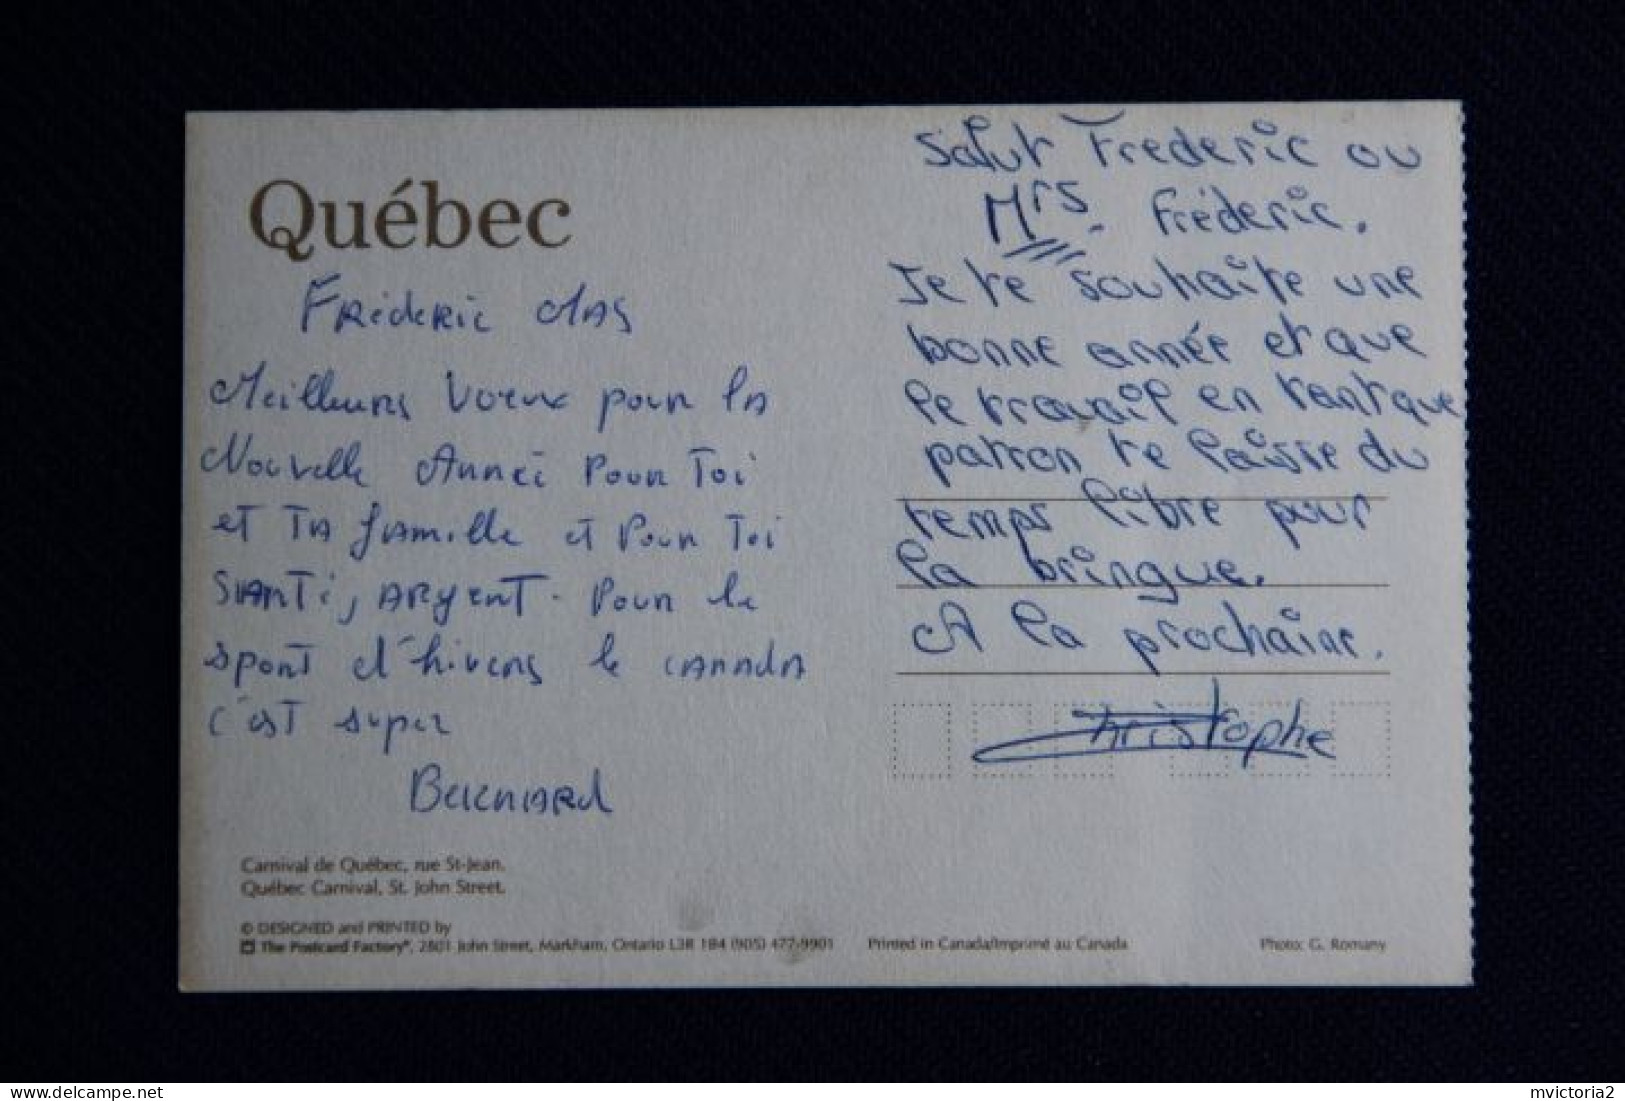 Québec
Fréderic MAS
Meilleurs Voeux pour la
Nouvelle Année Pour Toi
et TA famille et Pour Toi
SANTé, ARgent. Pour le
sport d'hivers le CANADA
c'est super
BERNARd
Salut Frederic ou
Mrs. Fréderic.
Je te souhaite une
bonne année et que
le travail en tant que
patron te laisse du
temps libre pour
la bringue.
A la prochaine.
Christophe
Carnival de Québec, rue St-Jean.
Québec Carnival, St. John Street.
© DESIGNED and PRINTED by
The Postcard Factory®, 2801 John Street, Markham, Ontario L3R 1B4 (905) 477-9901 Printed in Canada/Imprimé au Canada Photo: G. Romany
delcampe.net
mvictoria2